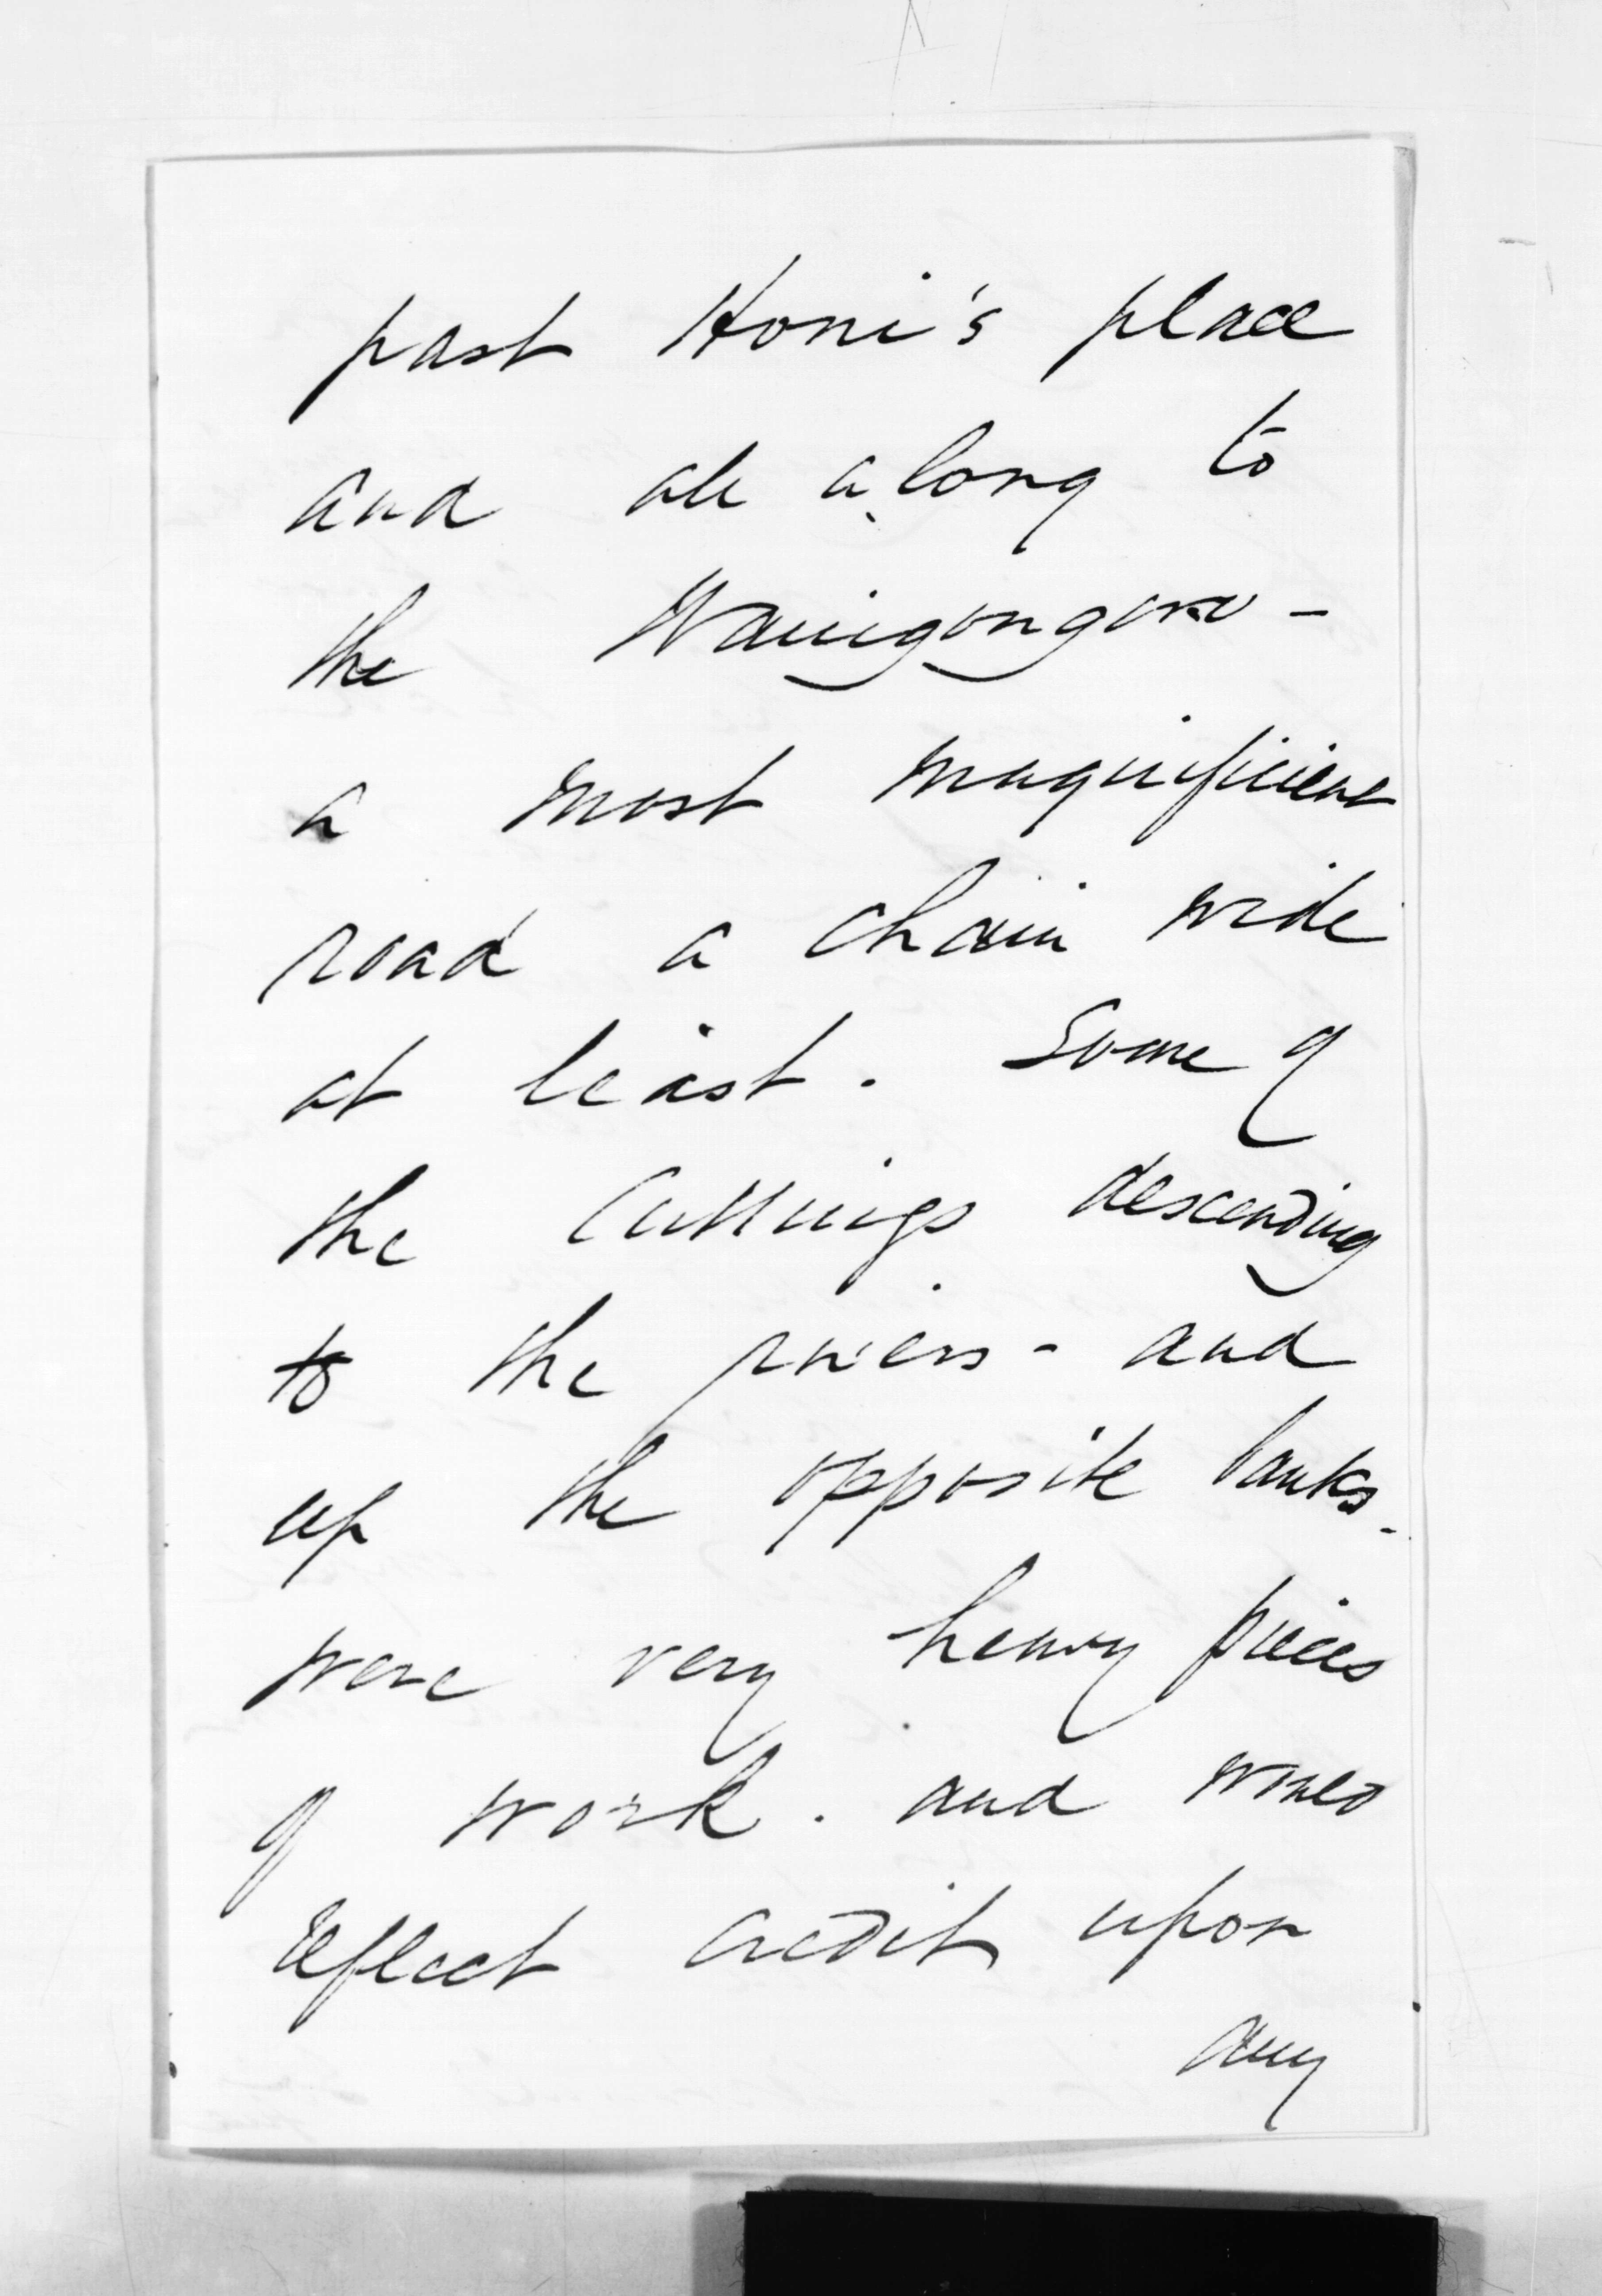 past Honi's place
and all along to
the Waingongoro -
a most magnificient
road a chain wide
at least. Some of
the Cuttings descending
to the rivers - and
up the opposite banks -
were very heavy pieces
of work. and would
reflect credit upon
any